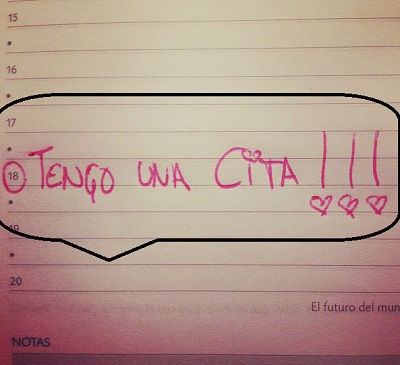 15
16
17
18 TENGO UNA CiTA !!!
19
20
El futuro del mun
NOTAS